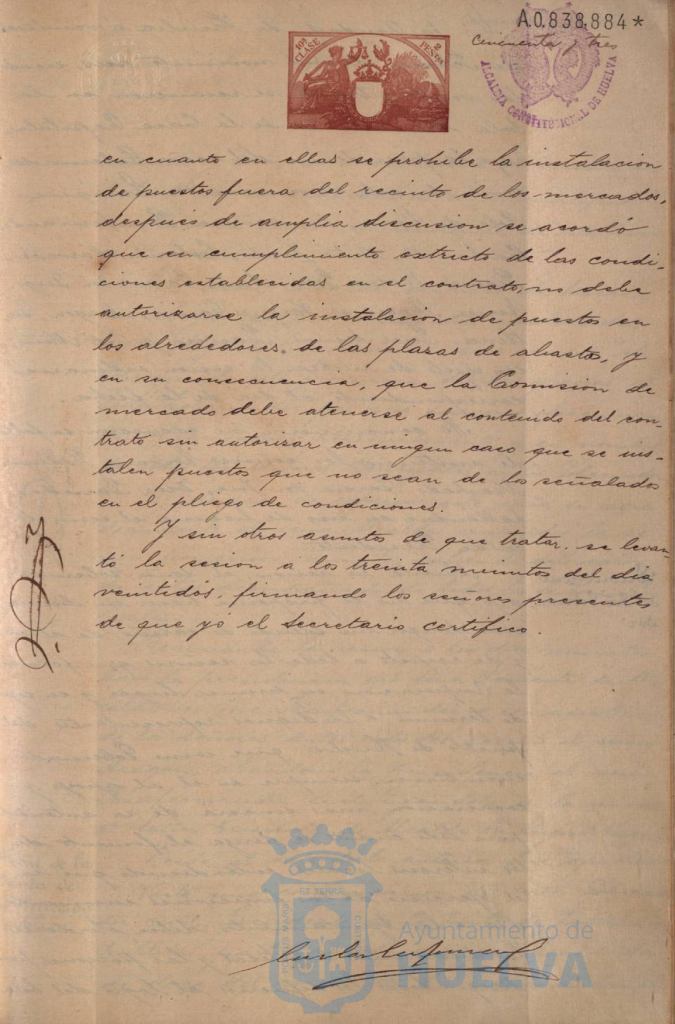 A0,838,884*
Cincuenta y tres
10ª CLASE
2 PESETAS
ALCALDIA CONSTITUCIONAL DE HUELVA
en cuanto en ellas se prohibe la instalacion
de puestos fuera del recinto de los mercados,
despues de amplia discusion se acordó
que en cumplimiento extricto de las condi-
ciones establecidas en el contrato, no debe
autorizarse la instalacion de puestos en
los alrededores de las plazas de abasto, y
en su consecuencia, que la Comision de
mercado debe atenerse al contenido del con-
trato sin autorizar en ningun caso que se ins-
talen puestos que no sean de los señalados
en el pliego de condiciones.
Y sin otros asuntos de que tratar, se levan-
tó la sesion a los treinta minutos del dia
veintidós, firmando los señores presentes
de que yo el Secretario certifico.
Ayuntamiento de
HUELVA